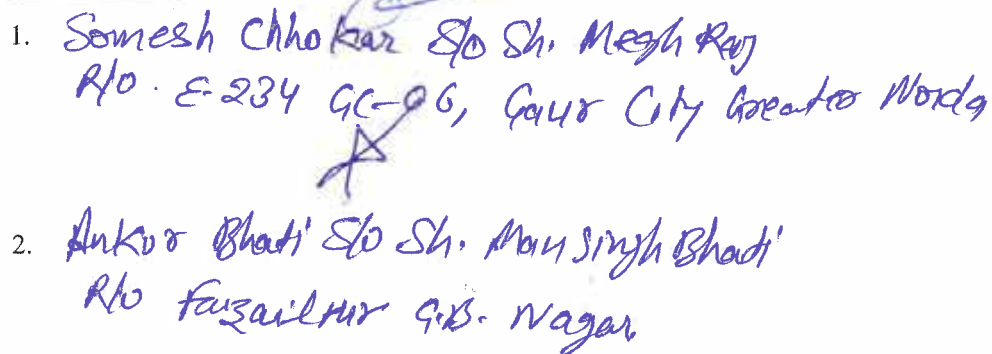 1. Somesh Chhokar S/o Sh. Megh Raj
R/o. E-234 GC-06, Gaur City Greater Noida
2. Ankur Bhati S/o Sh. Man Singh Bhati
R/o G.B. Nagar.